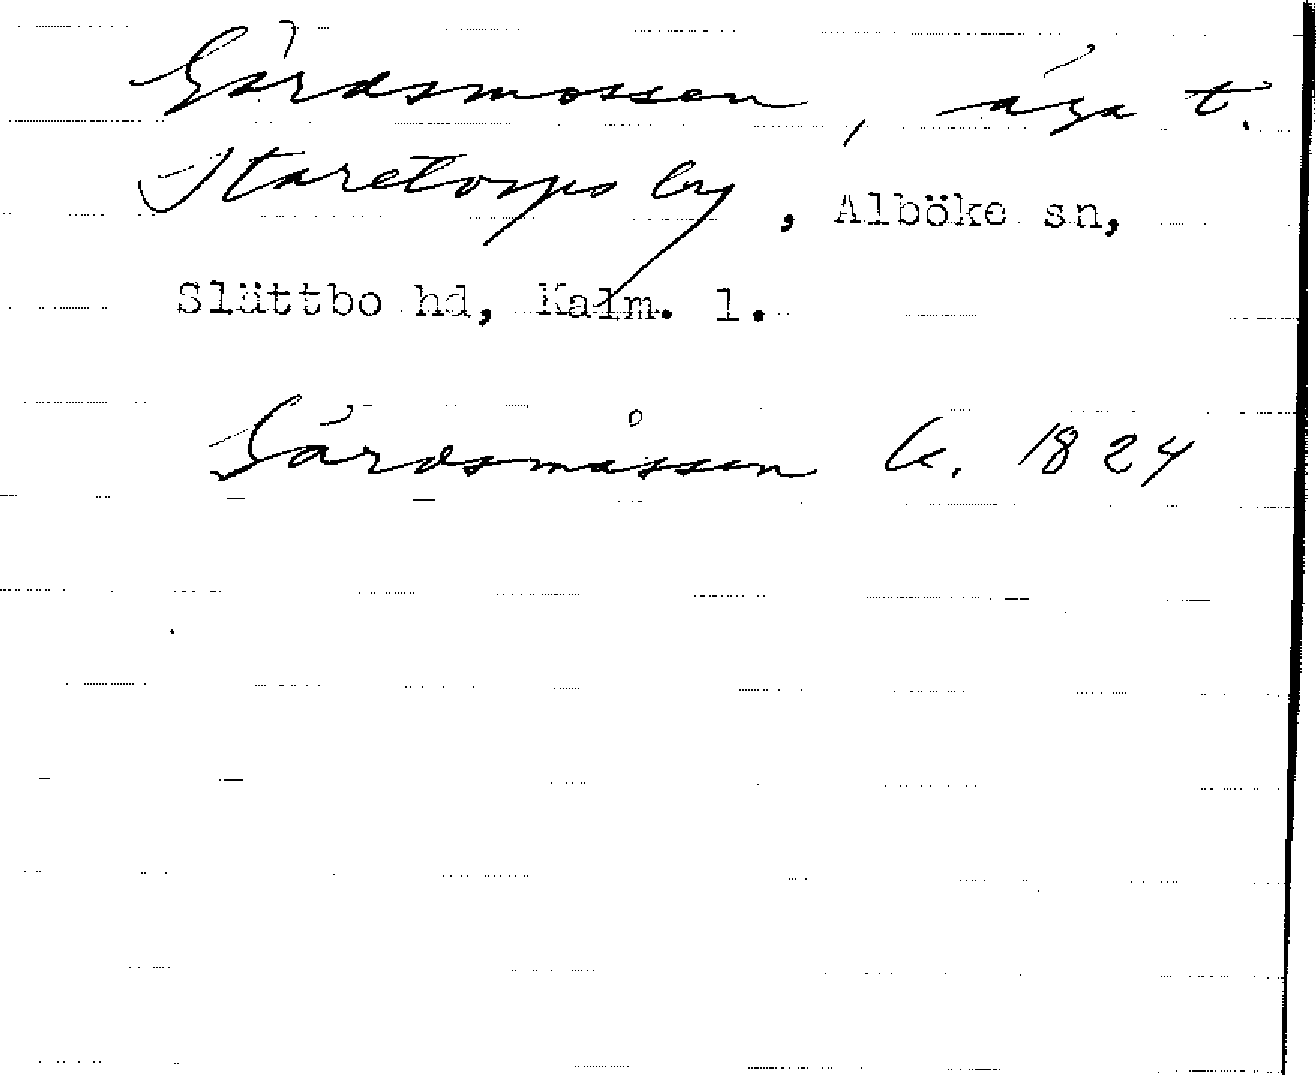 Gårdsmossen, äga t.
Staretorps by, Alböke sn,
Slättbo hd, Kalm. l.
Gårdsmåssen k. 1824